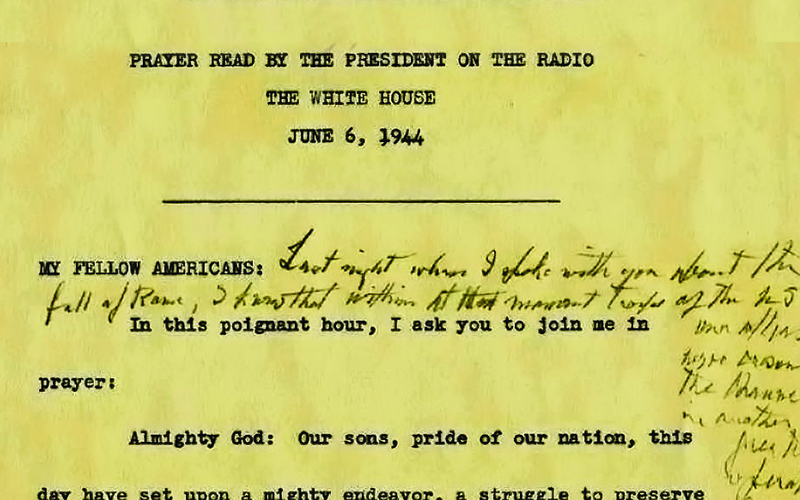 PRAYER READ BY THE PRESIDENT ON THE RADIO
THE WHITE HOUSE
JUNE 6, 1944
MY FELLOW AMERICANS: Last night when I spoke with you about the
fall of Rome, I knew that at that moment troops of the U S
In this poignant hour, I ask you to join me in
our allies
prayer:
were
the Channel
in another
Almighty God: Our sons, pride of our nation, this
day have set upon a mighty endeavor, a struggle to preserve